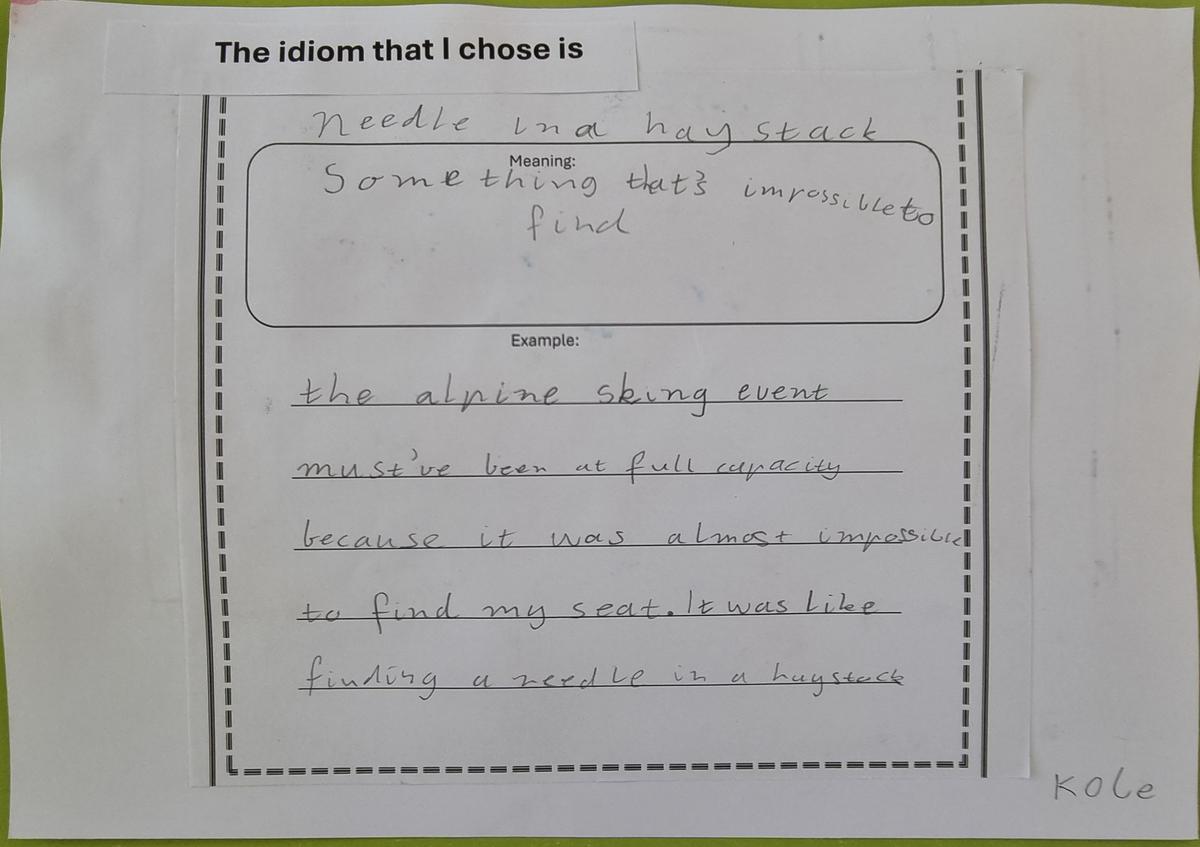 The idiom that I chose is
needle in a hay stack
Meaning:
Something that's impossible to
find
Example:
the alpine sking event
must've been at full capacity
because it was almost impossible
to find my seat. It was like
finding a needle in a haystack
Kole